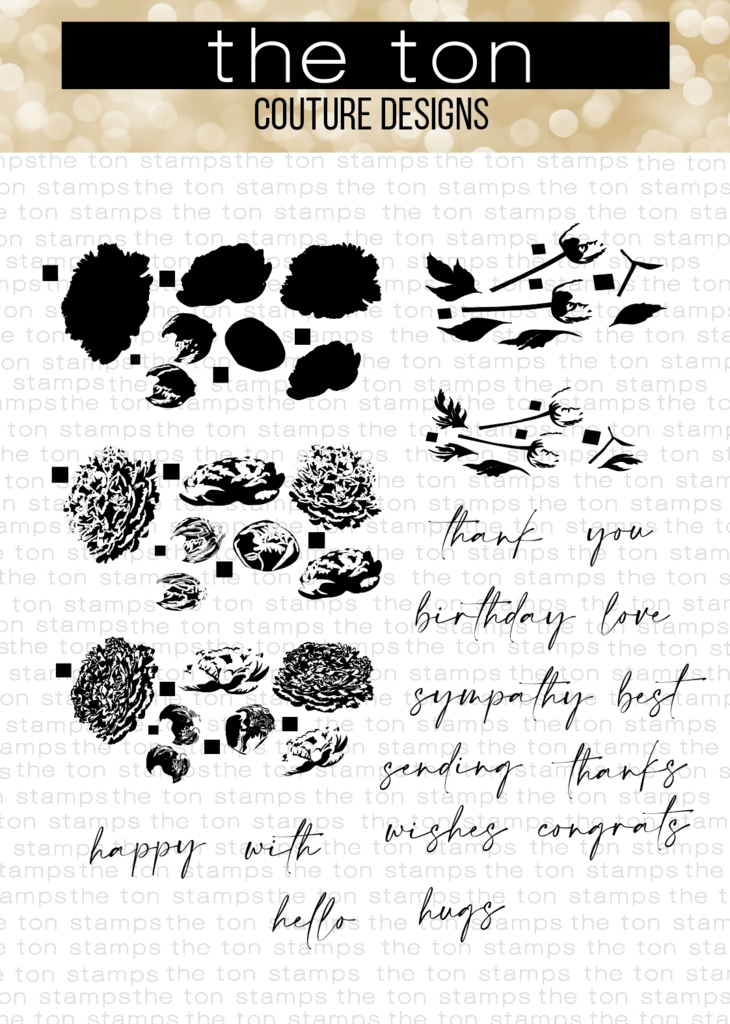 the ton
COUTURE DESIGNS
thank you
birthday love
sympathy best
sending thanks
wishes congrats
happy with
hello hugs
the ton stamps